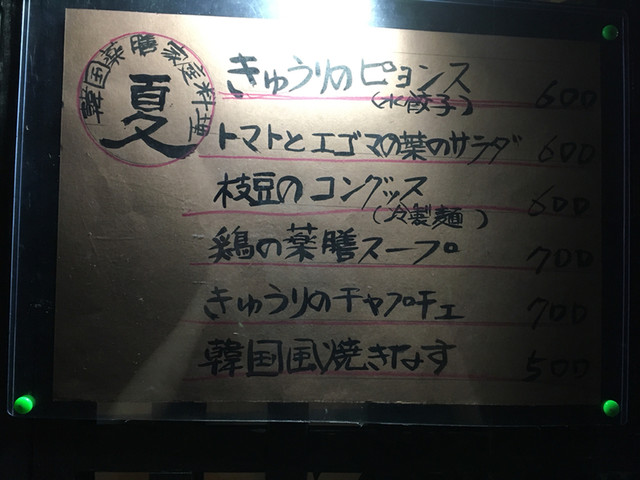 韓国薬膳家庭料理
夏
きゅうりのピョンス 600
(水餃子)
トマトとエゴマの葉のサラダ 600
枝豆のコングッス 600
(冷製麺)
鶏の薬膳スープ 700
きゅうりのチャプチェ 700
韓国風焼きなす 500